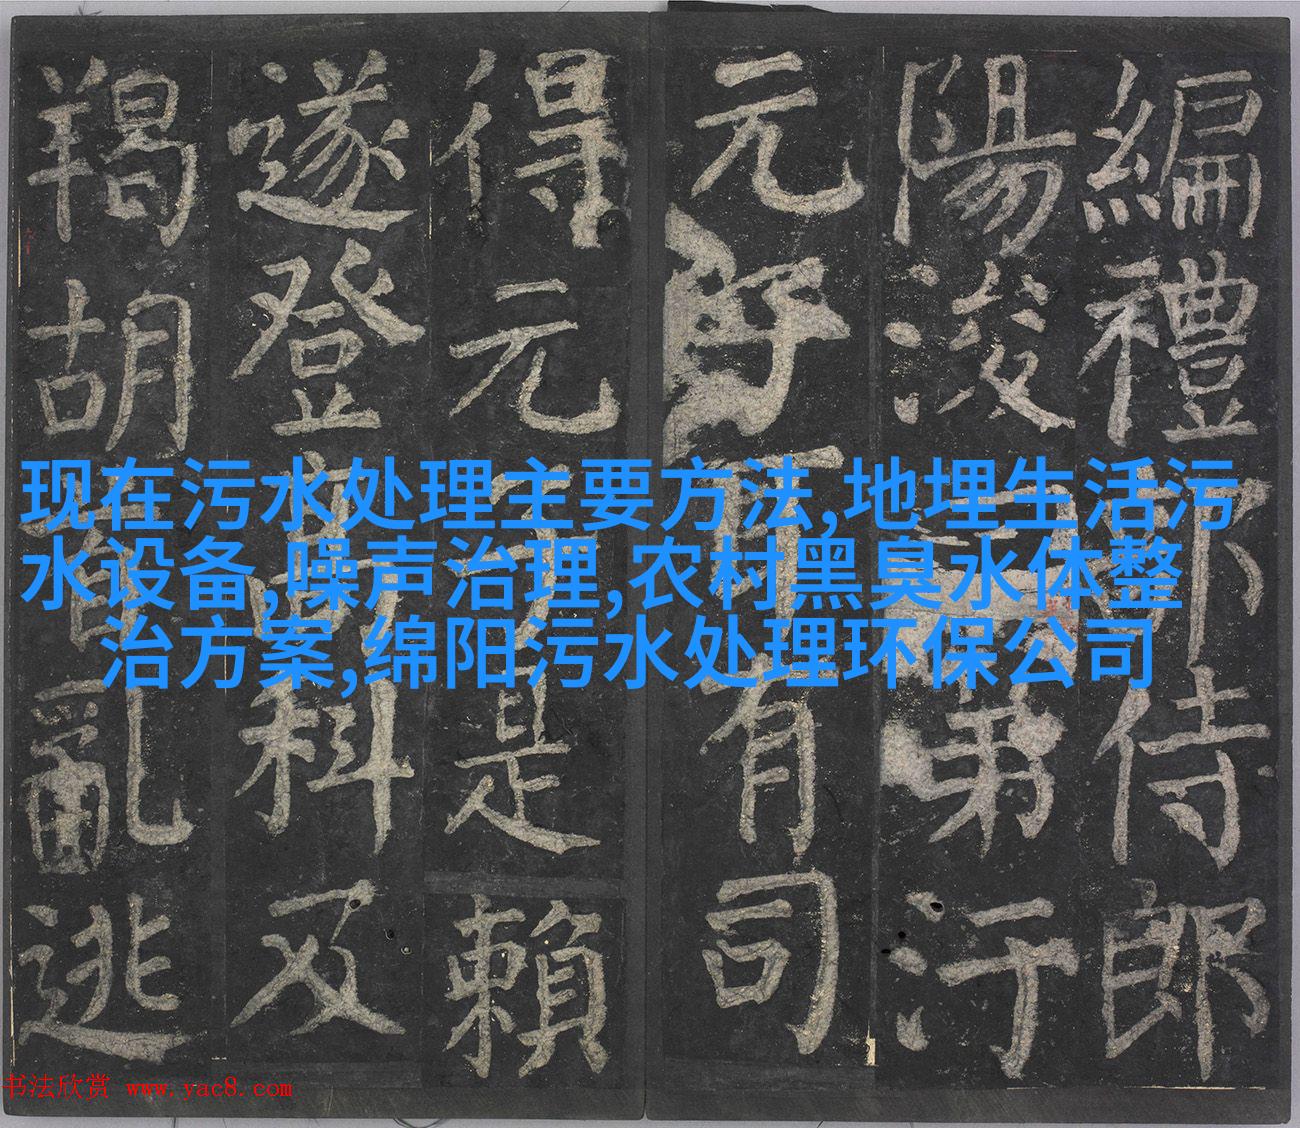 編禮侍郎
陽浚第汙
元子有司
得元是賴
遂登科及
羯胡亂逃
现在污水处理主要方法,地埋生活污
水设备,噪声治理,农村黑臭水体整
治方案,绵阳污水处理环保公司
书法欣赏 www.yac8.com